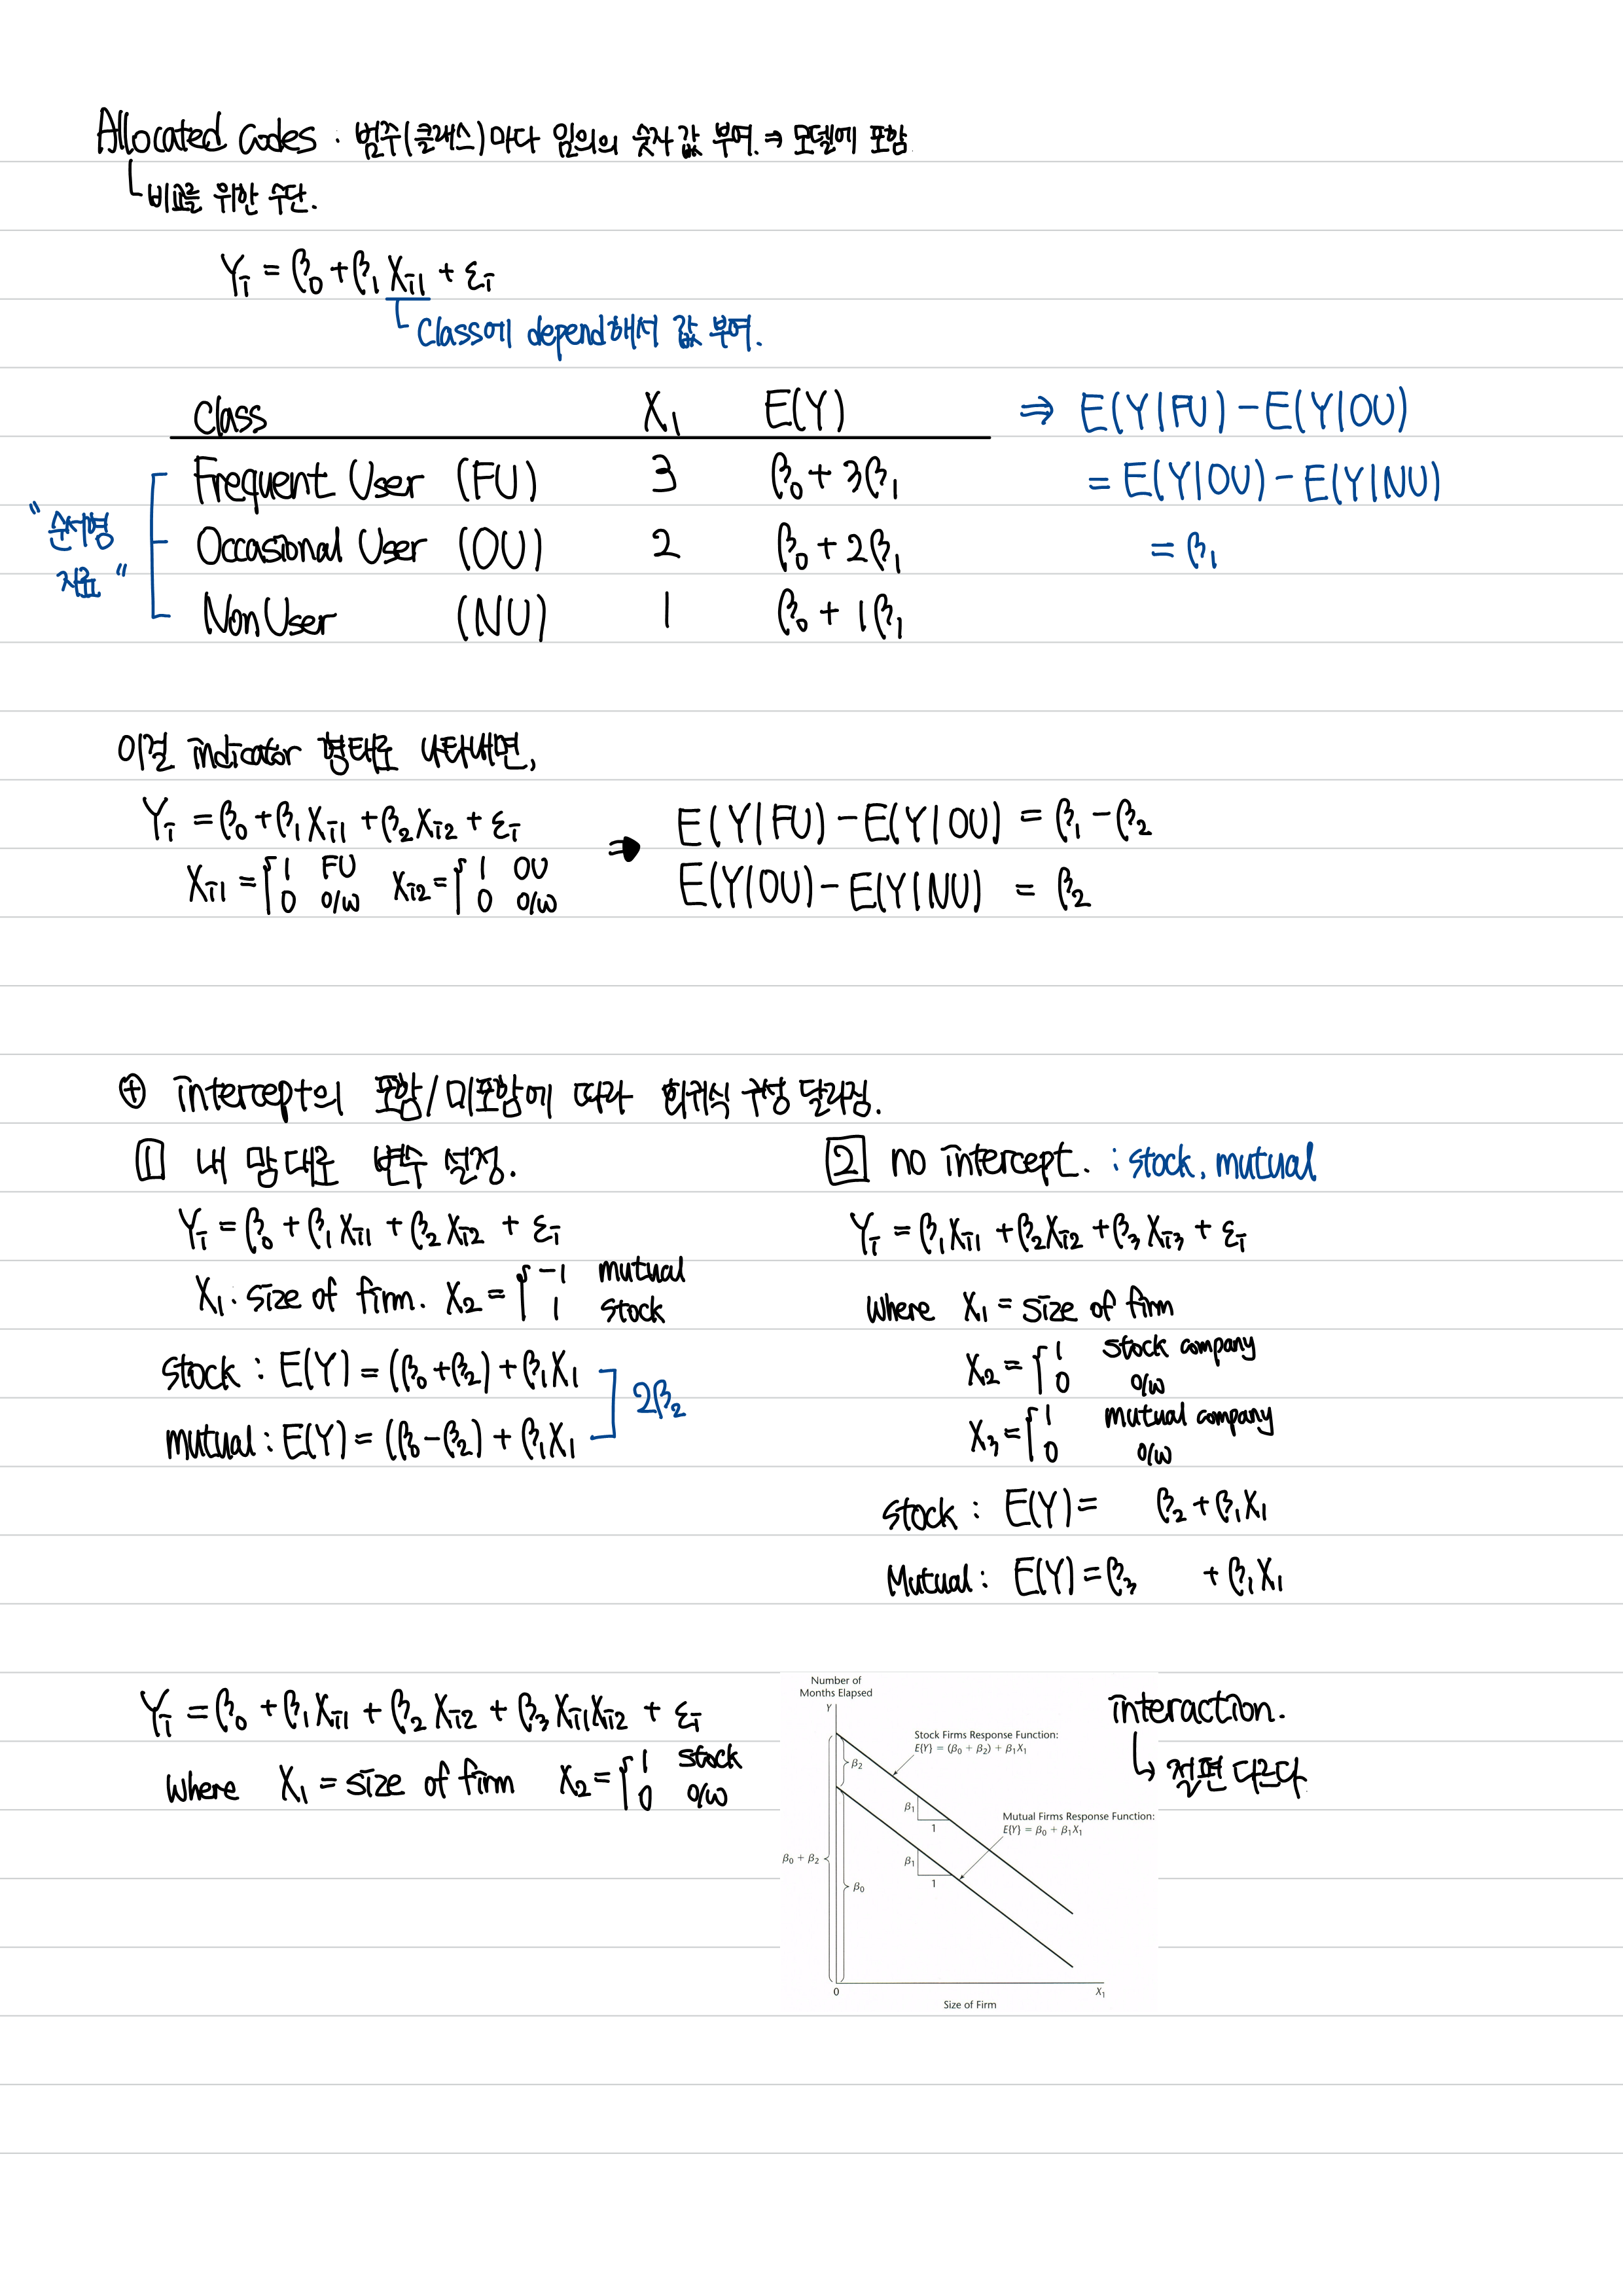 Allocated Codes : 범주(클래스)마다 임의의 숫자 값 부여. ⇒ 모델에 포함.
비교를 위한 수단.
Yᵢ = β₀ + β₁Xᵢ₁ + εᵢ
Class에 depend해서 값 부여.
Class X₁ E(Y)
Frequent User (FU) 3 β₀ + 3β₁
Occasional User (OU) 2 β₀ + 2β₁
Non User (NU) 1 β₀ + 1β₁
"순서형
자료"
⇒ E(Y|FU) - E(Y|OU)
= E(Y|OU) - E(Y|NU)
= β₁
이걸 indicator 형태로 나타내면,
Yᵢ = β₀ + β₁Xᵢ₁ + β₂Xᵢ₂ + εᵢ
Xᵢ₁ = { 1 FU Xᵢ₂ = { 1 OU
0 o/w 0 o/w
⇒ E(Y|FU) - E(Y|OU) = β₁ - β₂
E(Y|OU) - E(Y|NU) = β₂
⊕ intercept의 포함/미포함에 따라 회귀식 구성 달라짐.
1 내 맘대로 변수 설정.
Yᵢ = β₀ + β₁Xᵢ₁ + β₂Xᵢ₂ + εᵢ
X₁ : size of firm. X₂ = { -1 mutual
1 stock
stock : E(Y) = (β₀ + β₂) + β₁X₁
mutual : E(Y) = (β₀ - β₂) + β₁X₁
2β₂
2 no intercept. : stock, mutual
Yᵢ = β₁Xᵢ₁ + β₂Xᵢ₂ + β₃Xᵢ₃ + εᵢ
where X₁ = size of firm
X₂ = { 1 stock company
0 o/w
X₃ = { 1 mutual company
0 o/w
stock : E(Y) = β₂ + β₁X₁
Mutual : E(Y) = β₃ + β₁X₁
Yᵢ = β₀ + β₁Xᵢ₁ + β₂Xᵢ₂ + β₃Xᵢ₁Xᵢ₂ + εᵢ
where X₁ = size of firm X₂ = { 1 stock
0 o/w
Number of
Months Elapsed
Y
Stock Firms Response Function:
E{Y} = (β₀ + β₂) + β₁X₁
β₂
β₁
1
Mutual Firms Response Function:
E{Y} = β₀ + β₁X₁
β₀ + β₂
β₁
1
β₀
0
X₁
Size of Firm
interaction.
↳ 절편 다르다.